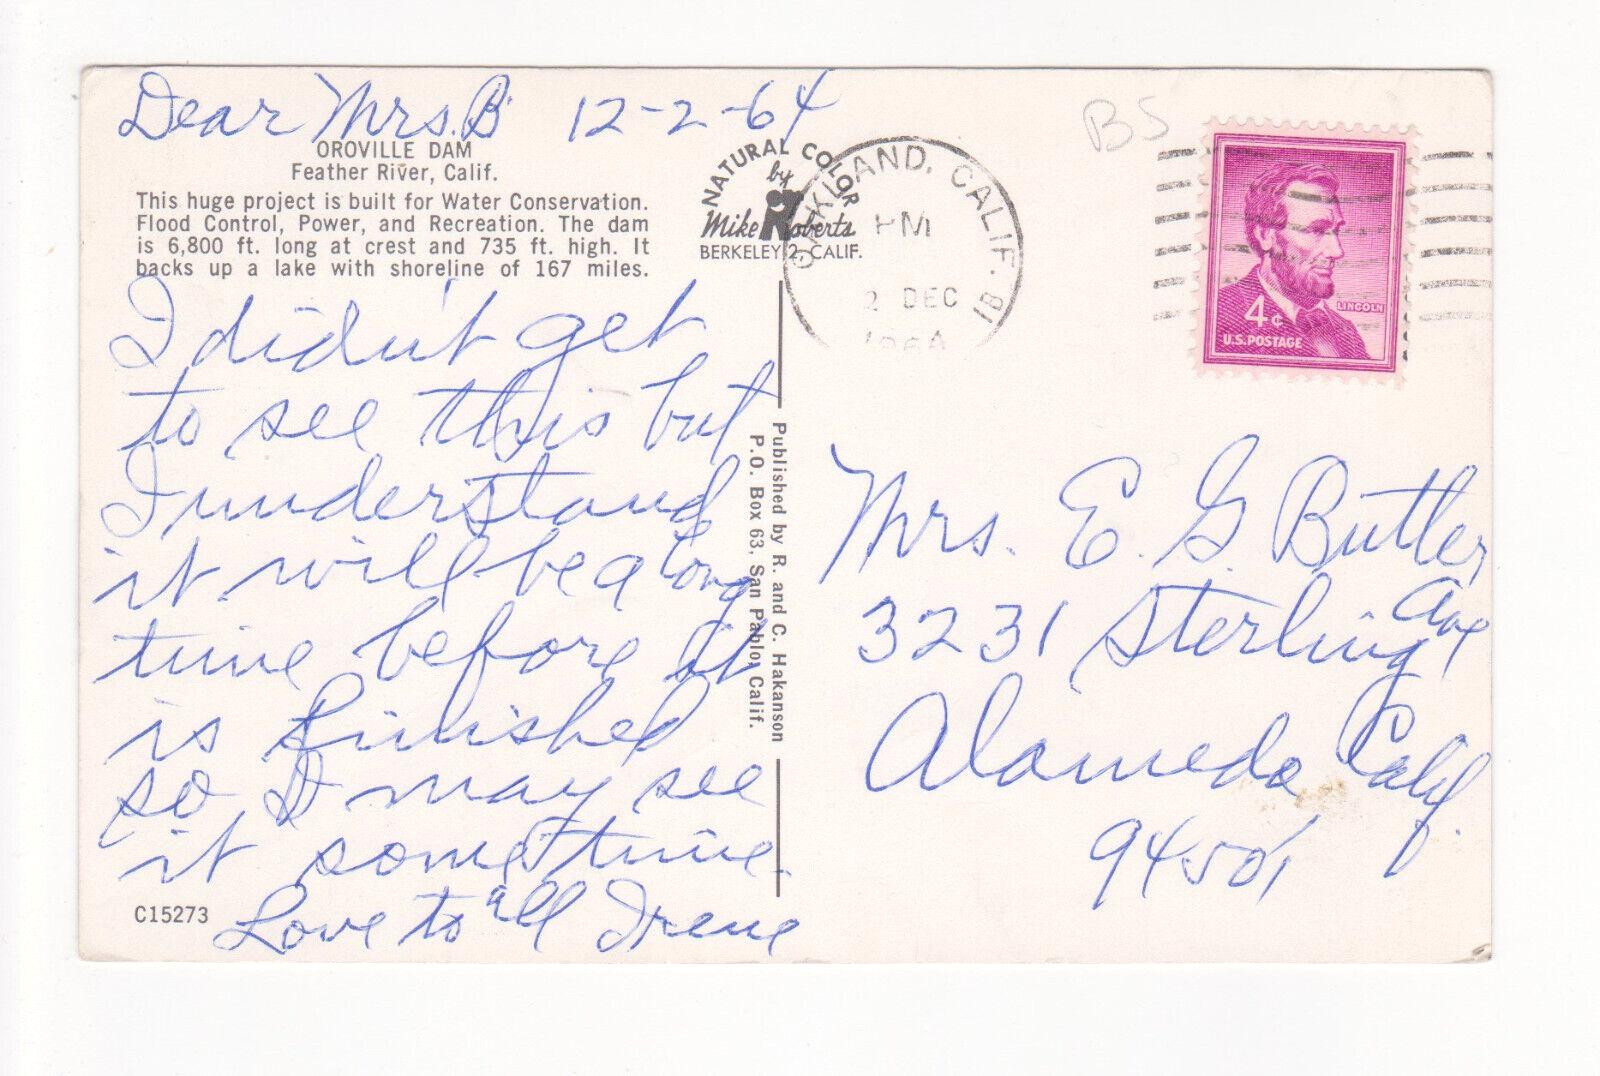 Dear Mrs. B 12-2-64
OROVILLE DAM
Feather River, Calif.
This huge project is built for Water Conservation.
Flood Control, Power, and Recreation. The dam
is 6,800 ft. long at crest and 735 ft. high. It
backs up a lake with shoreline of 167 miles.
I didn't get
to see this but
I understand
it will be a long
time before it
is finished
so I may see
it sometime.
Love to all Irene
C15273
NATURAL COLOR
by
Mike Roberts
BERKELEY 2, CALIF.
Published by R. and C. Hakanson
P.O. Box 63, San Pablo, Calif.
OAKLAND, CALIF. 18
PM
2 DEC
1964
BS
LINCOLN
4¢
U.S. POSTAGE
Mrs. E. G. Butler
3231 Sterling Ave
Alameda Calif.
94501